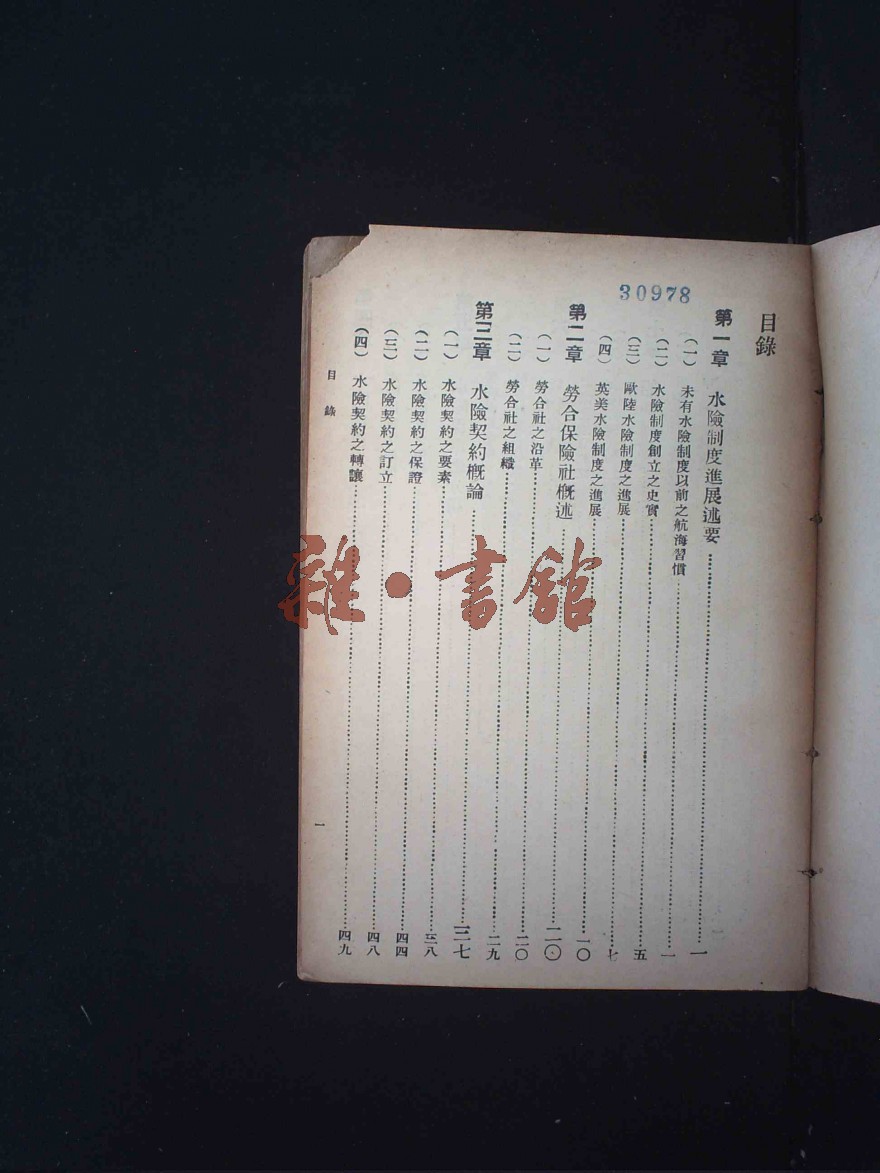 30978
目錄
第一章 水險制度進展述要……一
(一) 未有水險制度以前之航海習慣……一
(二) 水險制度創立之史實……五
(三) 歐陸水險制度之進展……七
(四) 英美水險制度之進展……一〇
第二章 勞合保險社概述……二〇
(一) 勞合社之沿革……二〇
(二) 勞合社之組織……二九
第三章 水險契約概論……三七
(一) 水險契約之要素……三八
(二) 水險契約之保證……四四
(三) 水險契約之訂立……四八
(四) 水險契約之轉讓……四九
目錄
一
雜·書館